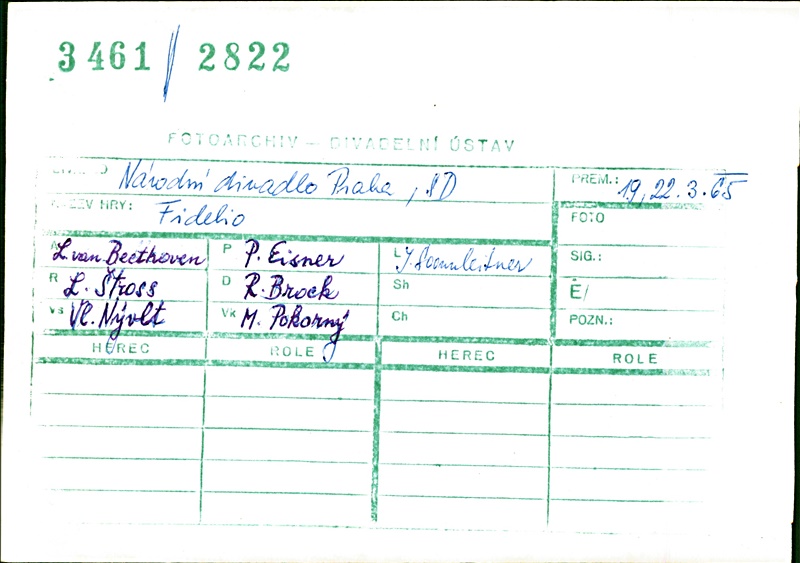 3461 / 2822
FOTOARCHIV — DIVADELNÍ ÚSTAV
Národní divadlo Praha, SD
PREM.: 19, 22. 3. 65
NÁZEV HRY: Fidelio
FOTO
A L. van Beethoven P P. Eisner L J. Sonnleitner SIG.:
R L. Štross D R. Brock Sh É/
Vs Vl. Nývlt Vk M. Pokorný Ch POZN.:
HEREC ROLE HEREC ROLE